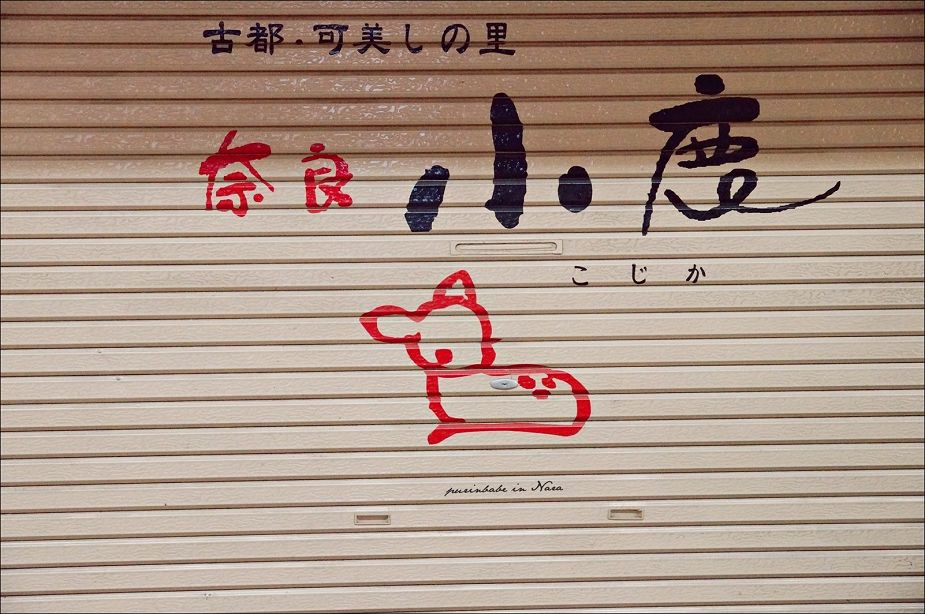 古都・可美しの里
奈良 小鹿
こじか
purinbabe in Nara